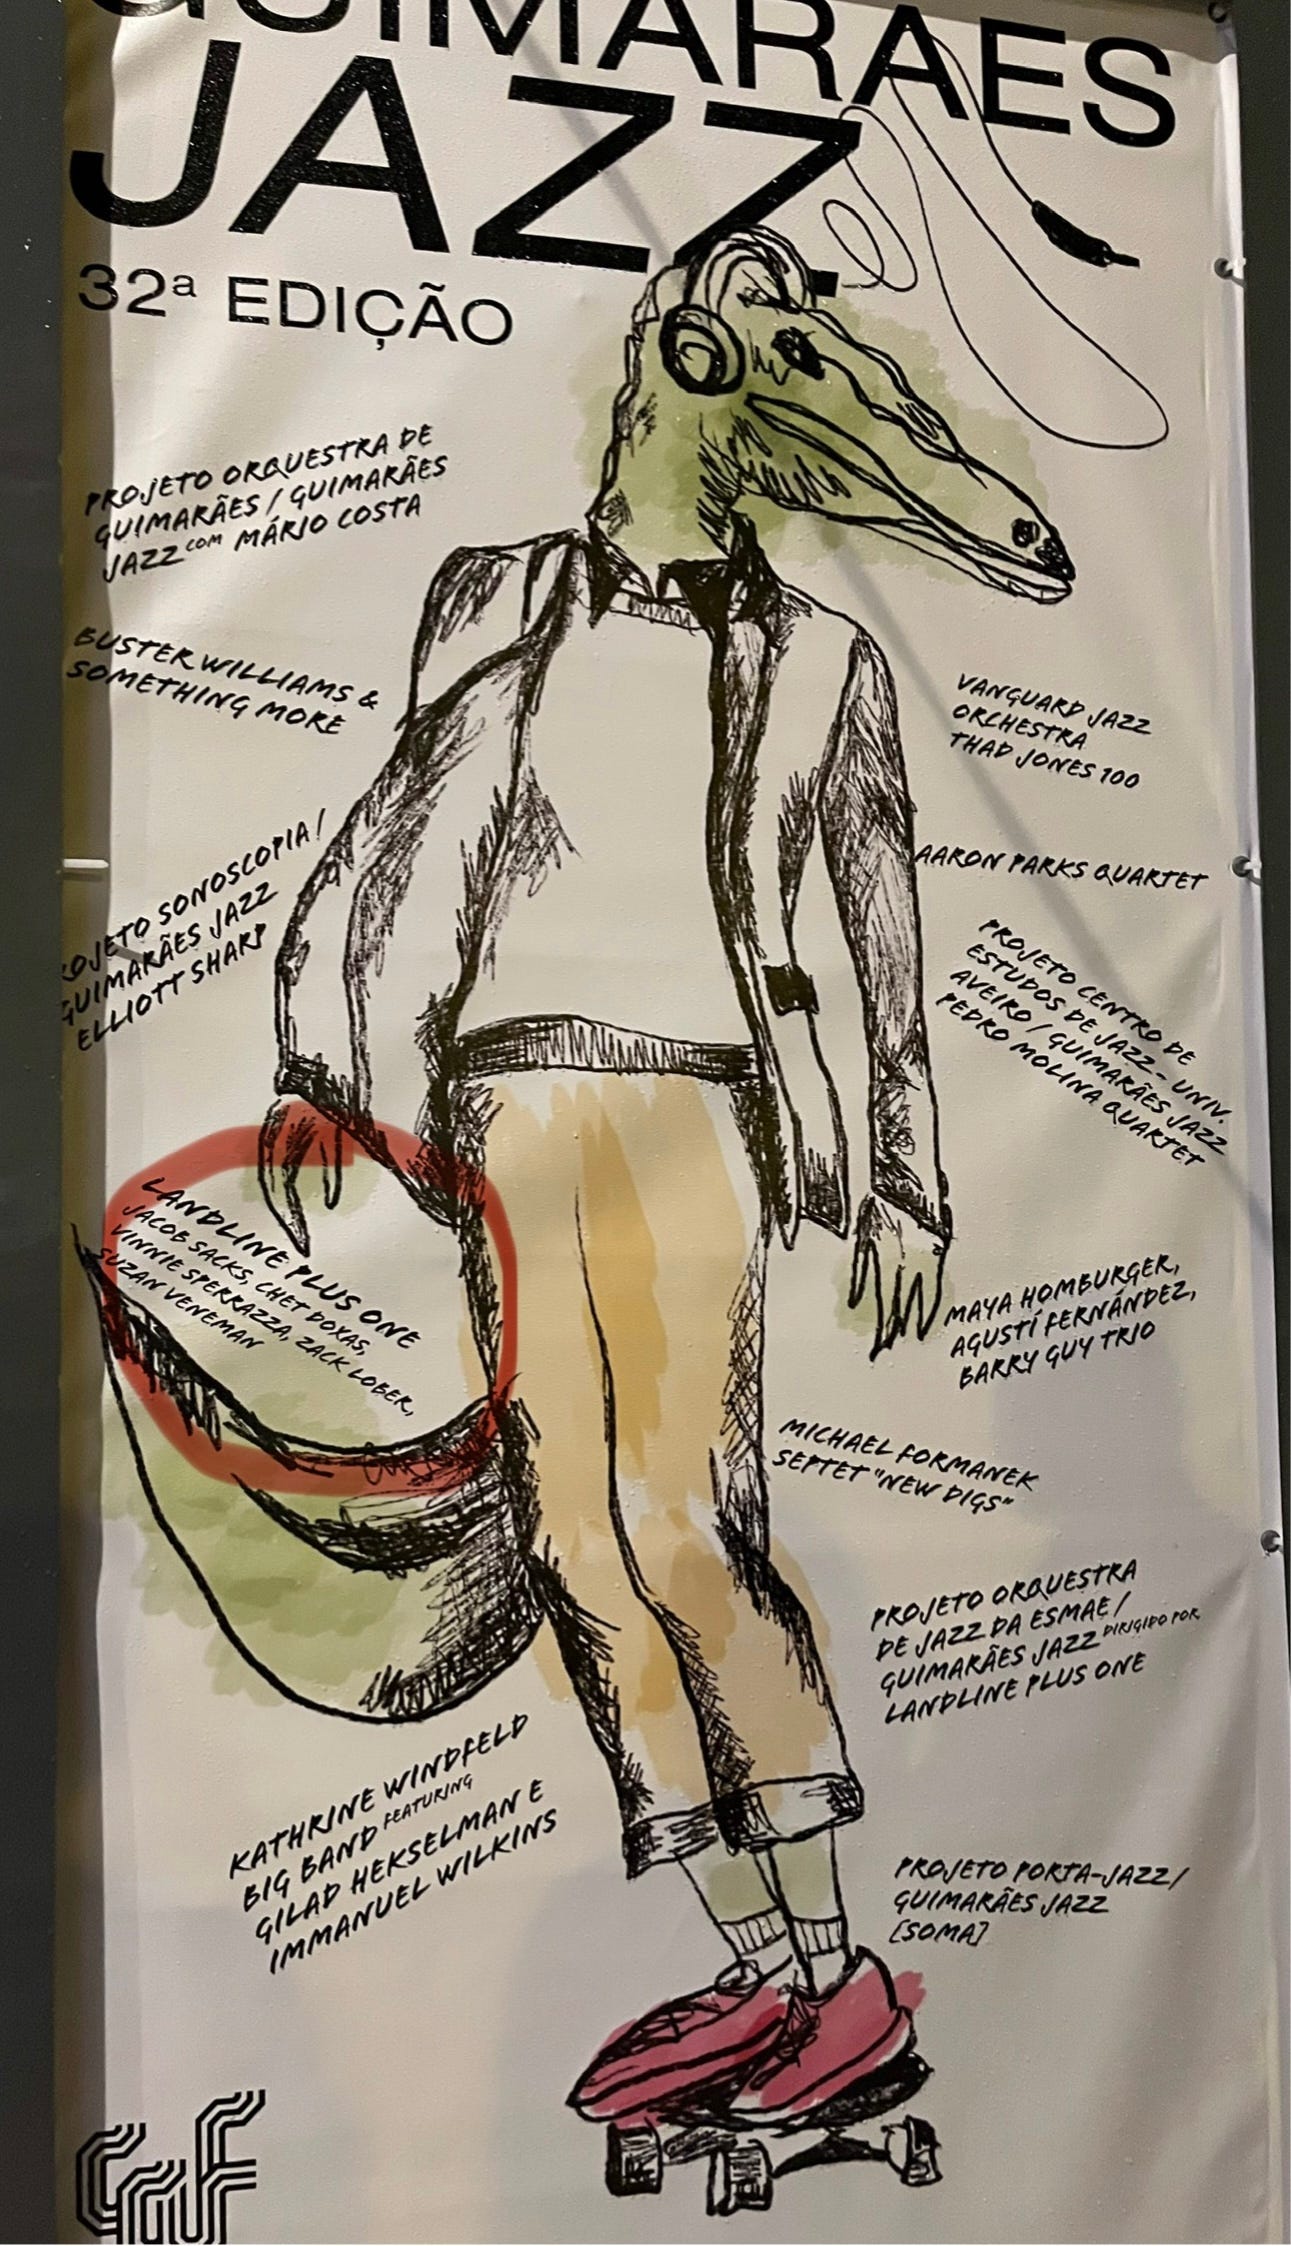 GUIMARÃES
JAZZ
32ª EDIÇÃO
PROJETO ORQUESTRA DE
GUIMARÃES / GUIMARÃES
JAZZ COM MÁRIO COSTA
BUSTER WILLIAMS &
SOMETHING MORE
VANGUARD JAZZ
ORCHESTRA
THAD JONES 100
OJETO SONOSCOPIA /
GUIMARÃES JAZZ
ELLIOTT SHARP
AARON PARKS QUARTET
PROJETO CENTRO DE
ESTUDOS DE JAZZ - UNIV.
AVEIRO / GUIMARÃES JAZZ
PEDRO MOLINA QUARTET
LANDLINE PLUS ONE
JACOB SACKS, CHET DOXAS,
VINNIE SPERRAZZA, ZACK LOBER,
SUZAN VENEMAN
MAYA HOMBURGER,
AGUSTÍ FERNÁNDEZ,
BARRY GUY TRIO
MICHAEL FORMANEK
SEPTET "NEW DIGS"
PROJETO ORQUESTRA
DE JAZZ DA ESMAE /
GUIMARÃES JAZZ DIRIGIDO POR
LANDLINE PLUS ONE
KATHRINE WINDFELD
BIG BAND FEATURING
GILAD HEKSELMAN E
IMMANUEL WILKINS
PROJETO PORTA-JAZZ /
GUIMARÃES JAZZ
[SOMA]